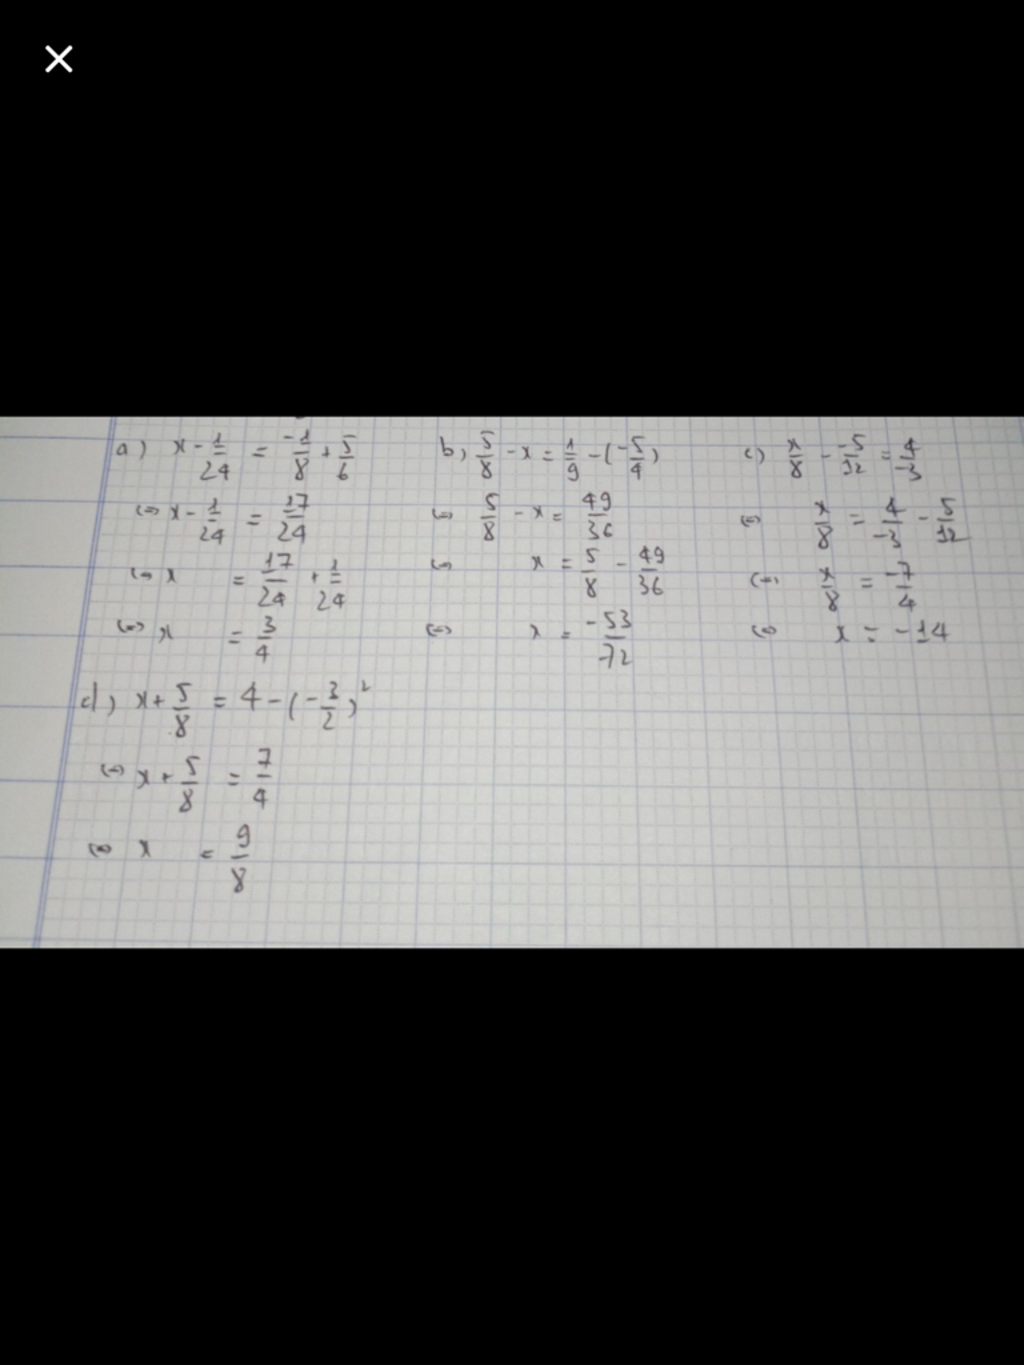 a) x - 1/24 = -1/8 + 5/6
⇔ x - 1/24 = 17/24
⇔ x = 17/24 + 1/24
⇔ x = 3/4
b) 5/8 - x = 1/9 - (-5/4)
⇔ 5/8 - x = 49/36
⇔ x = 5/8 - 49/36
⇔ x = -53/72
c) x/8 - -5/12 = 4/-3
⇔ x/8 = 4/-3 - 5/12
⇔ x/8 = -7/4
⇔ x = -14
d) x + 5/8 = 4 - (-3/2)²
⇔ x + 5/8 = 7/4
⇔ x = 9/8